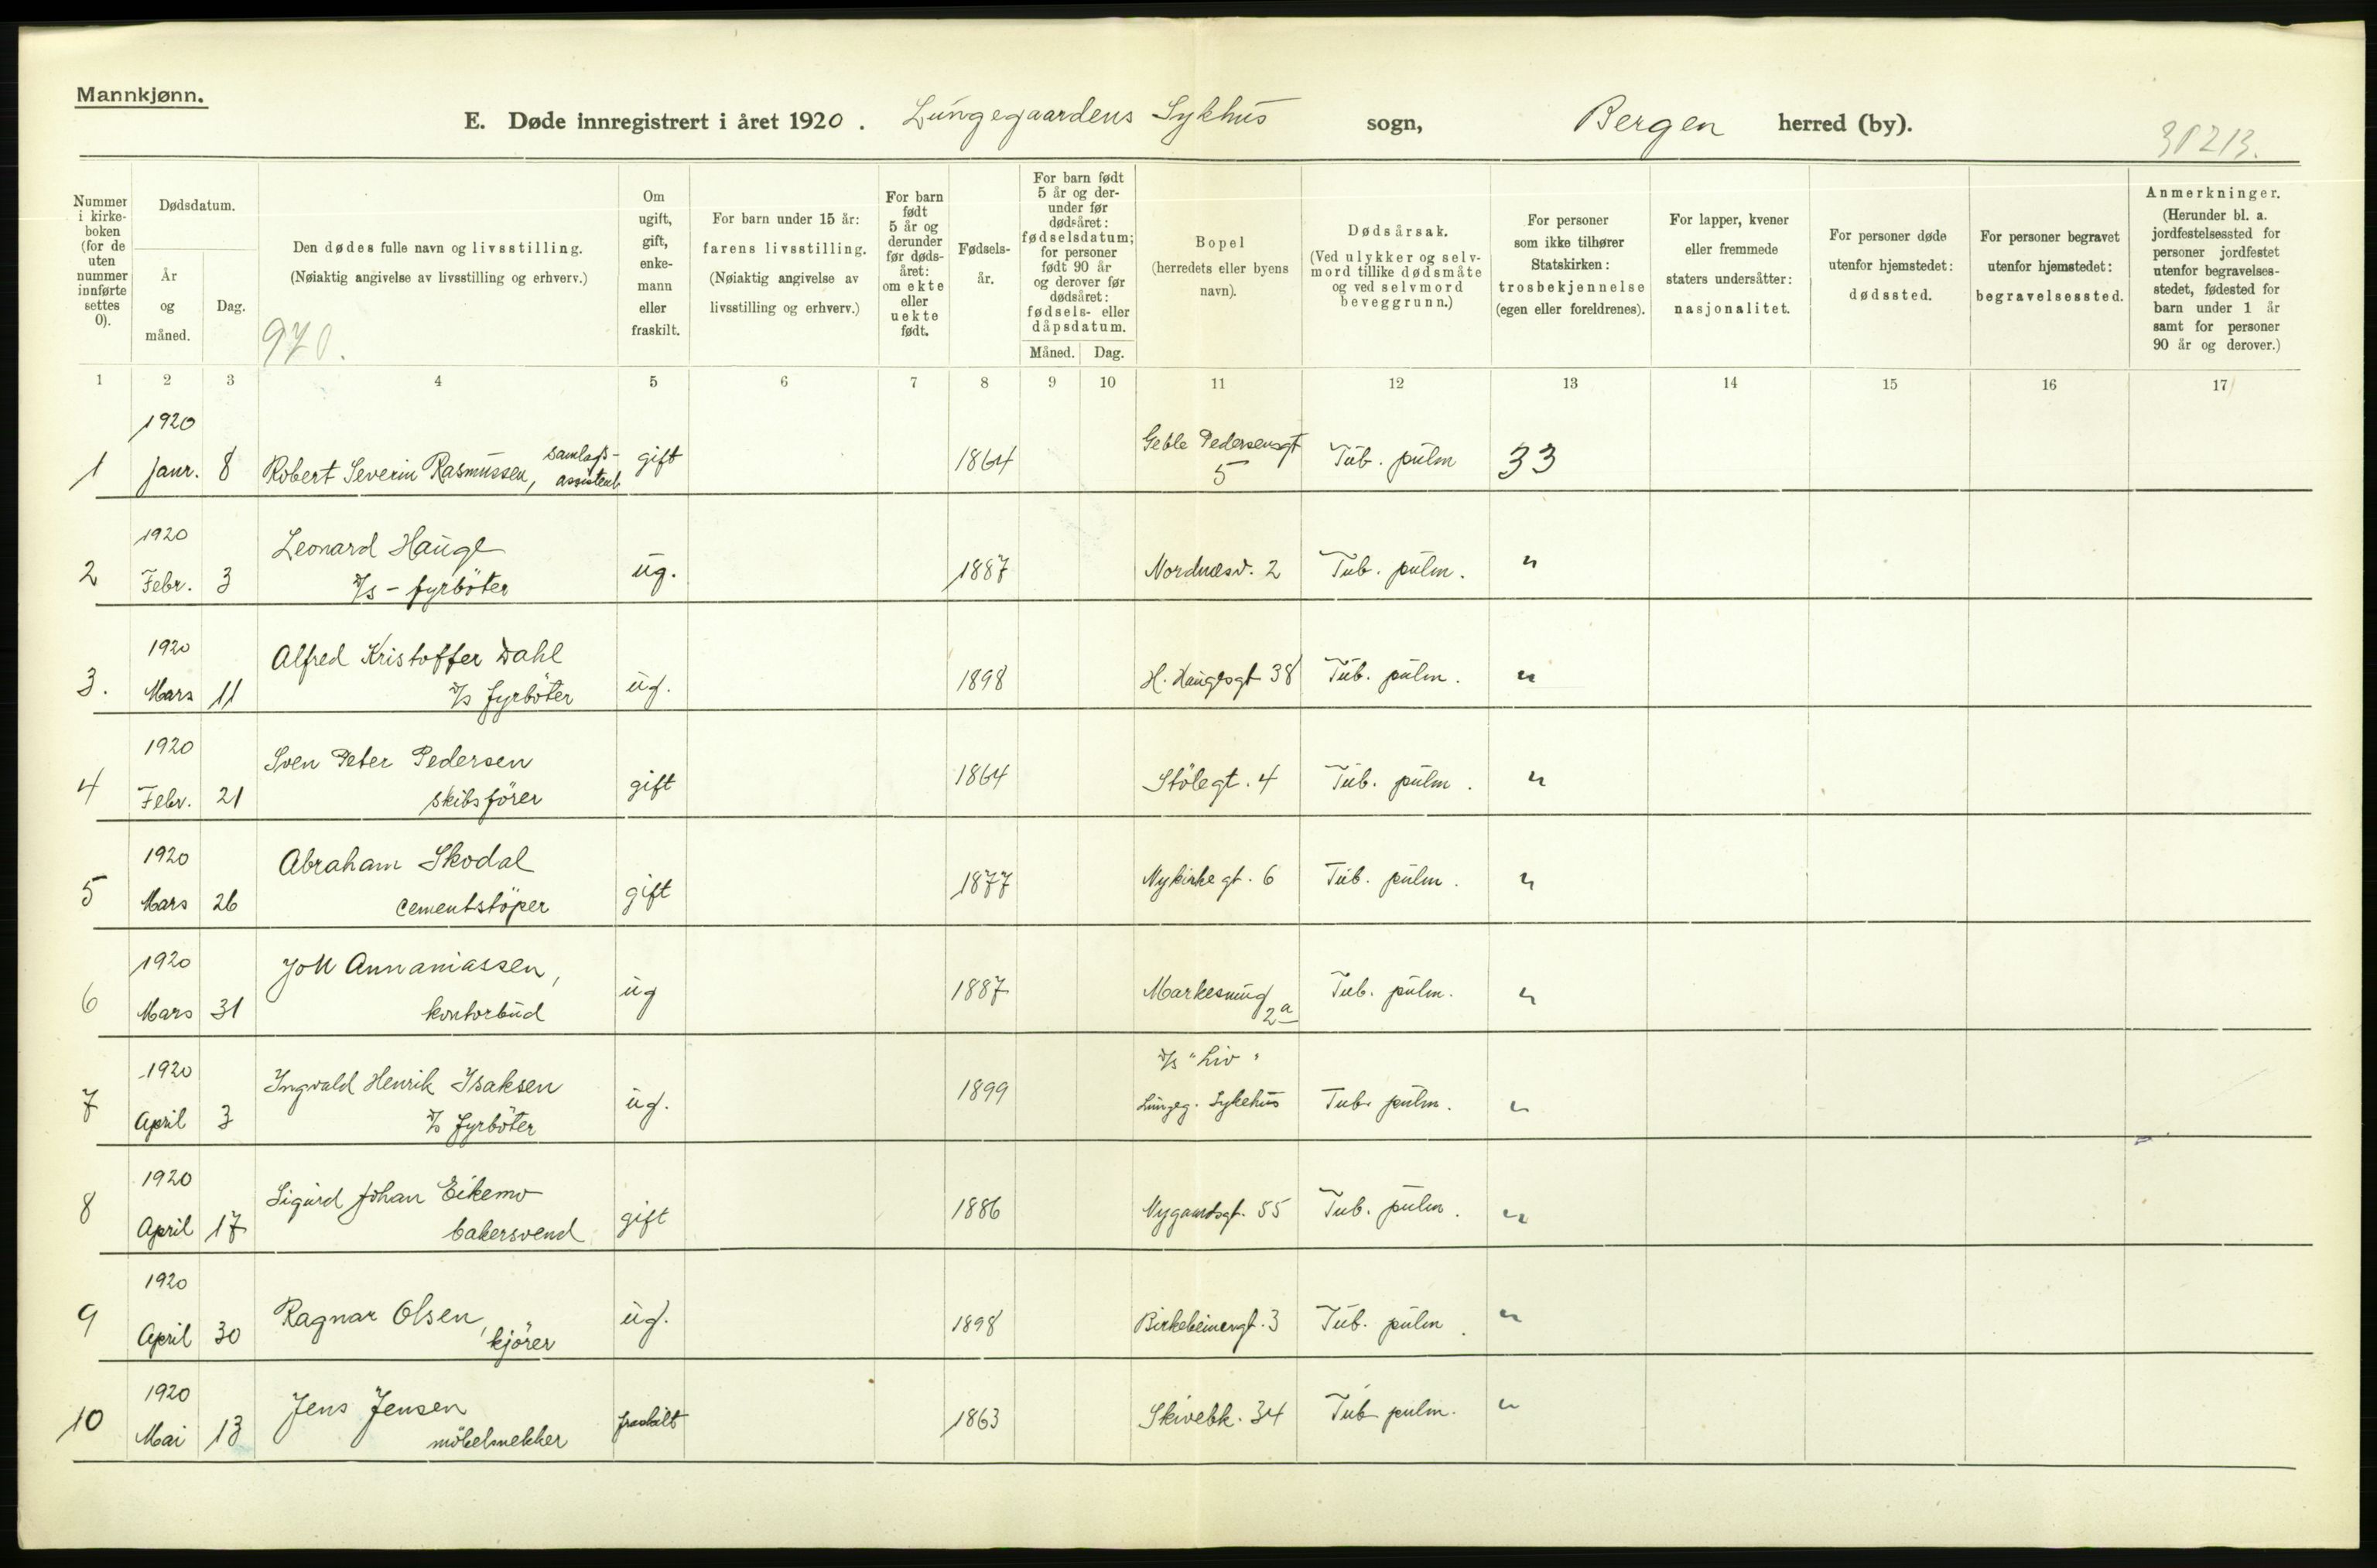 Mannkjønn.
E. Døde innregistrert i året 1920. Lungegaardens Sykhus sogn, Bergen herred (by).
Nummer i kirke- boken (for de uten nummer innførte settes 0).
Dødsdatum.
År og måned.
Dag.
Den dødes fulle navn og livsstilling.
(Nøiaktig angivelse av livsstilling og erhverv.)
970.
Om ugift, gift, enke- mann eller fraskilt.
For barn under 15 år:
farens livsstilling.
(Nøiaktig angivelse av
livsstilling og erhverv.)
For barn født 5 år og derunder før døds- året: om ekte eller uekte født.
Fødsels- år.
For barn født 5 år og der- under før dødsåret: fødselsdatum; for personer født 90 år og derover før dødsåret: fødsels- eller dåpsdatum.
Måned. Dag.
Bopel
(herredets eller byens
navn).
Dødsårsak.
(Ved ulykker og selv-
mord tillike dødsmåte
og ved selvmord
beveggrunn.)
For personer
som ikke tilhører
Statskirken:
trosbekjennelse
(egen eller foreldrenes).
For lapper, kvener
eller fremmede
staters undersåtter:
nasjonalitet.
For personer døde
utenfor hjemstedet:
dødssted.
For personer begravet
utenfor hjemstedet:
begravelsessted.
Anmerkninger.
(Herunder bl. a.
jordfestelsessted for
personer jordfestet
utenfor begravelses-
stedet, fødested for
barn under 1 år
samt for personer
90 år og derover.)
1 2 3 4 5 6 7 8 9 10 11 12 13 14 15 16 17
1920
1 Janr. 8 Robert Severin Rasmussen, samlags- assistent gift 1864 Geble Pedersensgt 5 Tub. pulm 33
1920 Leonard Hauge
2 Febr. 3 D/s - fyrböter ug. 1887 Nordnæsv. 2 Tub. pulm. "
1920 Alfred Kristoffer Dahl
3. Mars 11 D/s fyrböter ug. 1898 H. Haugesgt 38 Tub. pulm. "
1920 Sven Peter Pedersen
4 Febr. 21 skibsförer gift 1864 Stölegt. 4 Tub. pulm. "
1920 Abraham Skodal
5 Mars 26 cementstöper gift 1877 Nykirkegt. 6 Tub. pulm. "
1920 Annaniassen,
6 Mars 31 kontorbud ug 1887 Markesmug 2a Tub. pulm. "
1920 Ingvald Henrik Isaksen D/s "Liv"
7 April 3 D/s fyrböter ug. 1899 Lungeg. Sykehus Tub. pulm. "
1920 Sigurd Johan Eikemo
8 April 17 bakersvend gift 1886 Nygaardsgt. 55 Tub. pulm. "
1920 Ragnar Olsen,
9 April 30 kjörer ug. 1898 Birkebeinergt. 3 Tub. pulm. "
1920 Jens Jensen
10 Mai 13 möbelsnekker fraskilt 1863 Skivebk. 34 Tub pulm. "